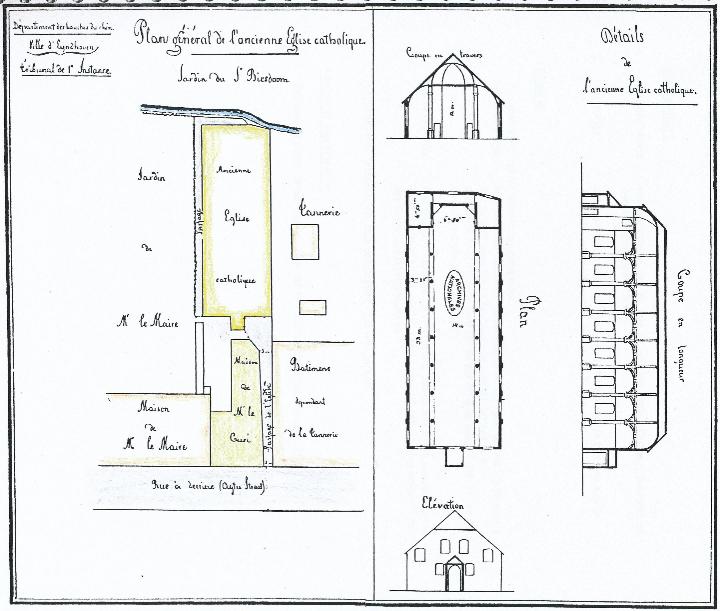 Département des bouches du rhin.
Ville d'Eyndhoven
Tribunal de 1e Instance.
Plan général de l'ancienne Eglise catholique.
Jardin du Sr
Jardin
de
Mr le Maire
Passage
Ancienne
Eglise
catholique
Tannerie
Maison
de
Mr le
Curé
Passage de l'Eglise
Batimens
dependant
de la Tannerie
Maison
de
Mr le Maire
Rue à derriere
Coupe en travers
Plan
ARCHIVES
NATIONALES
Elévation
Détails
de
l'ancienne Eglise catholique.
Coupe en longueur